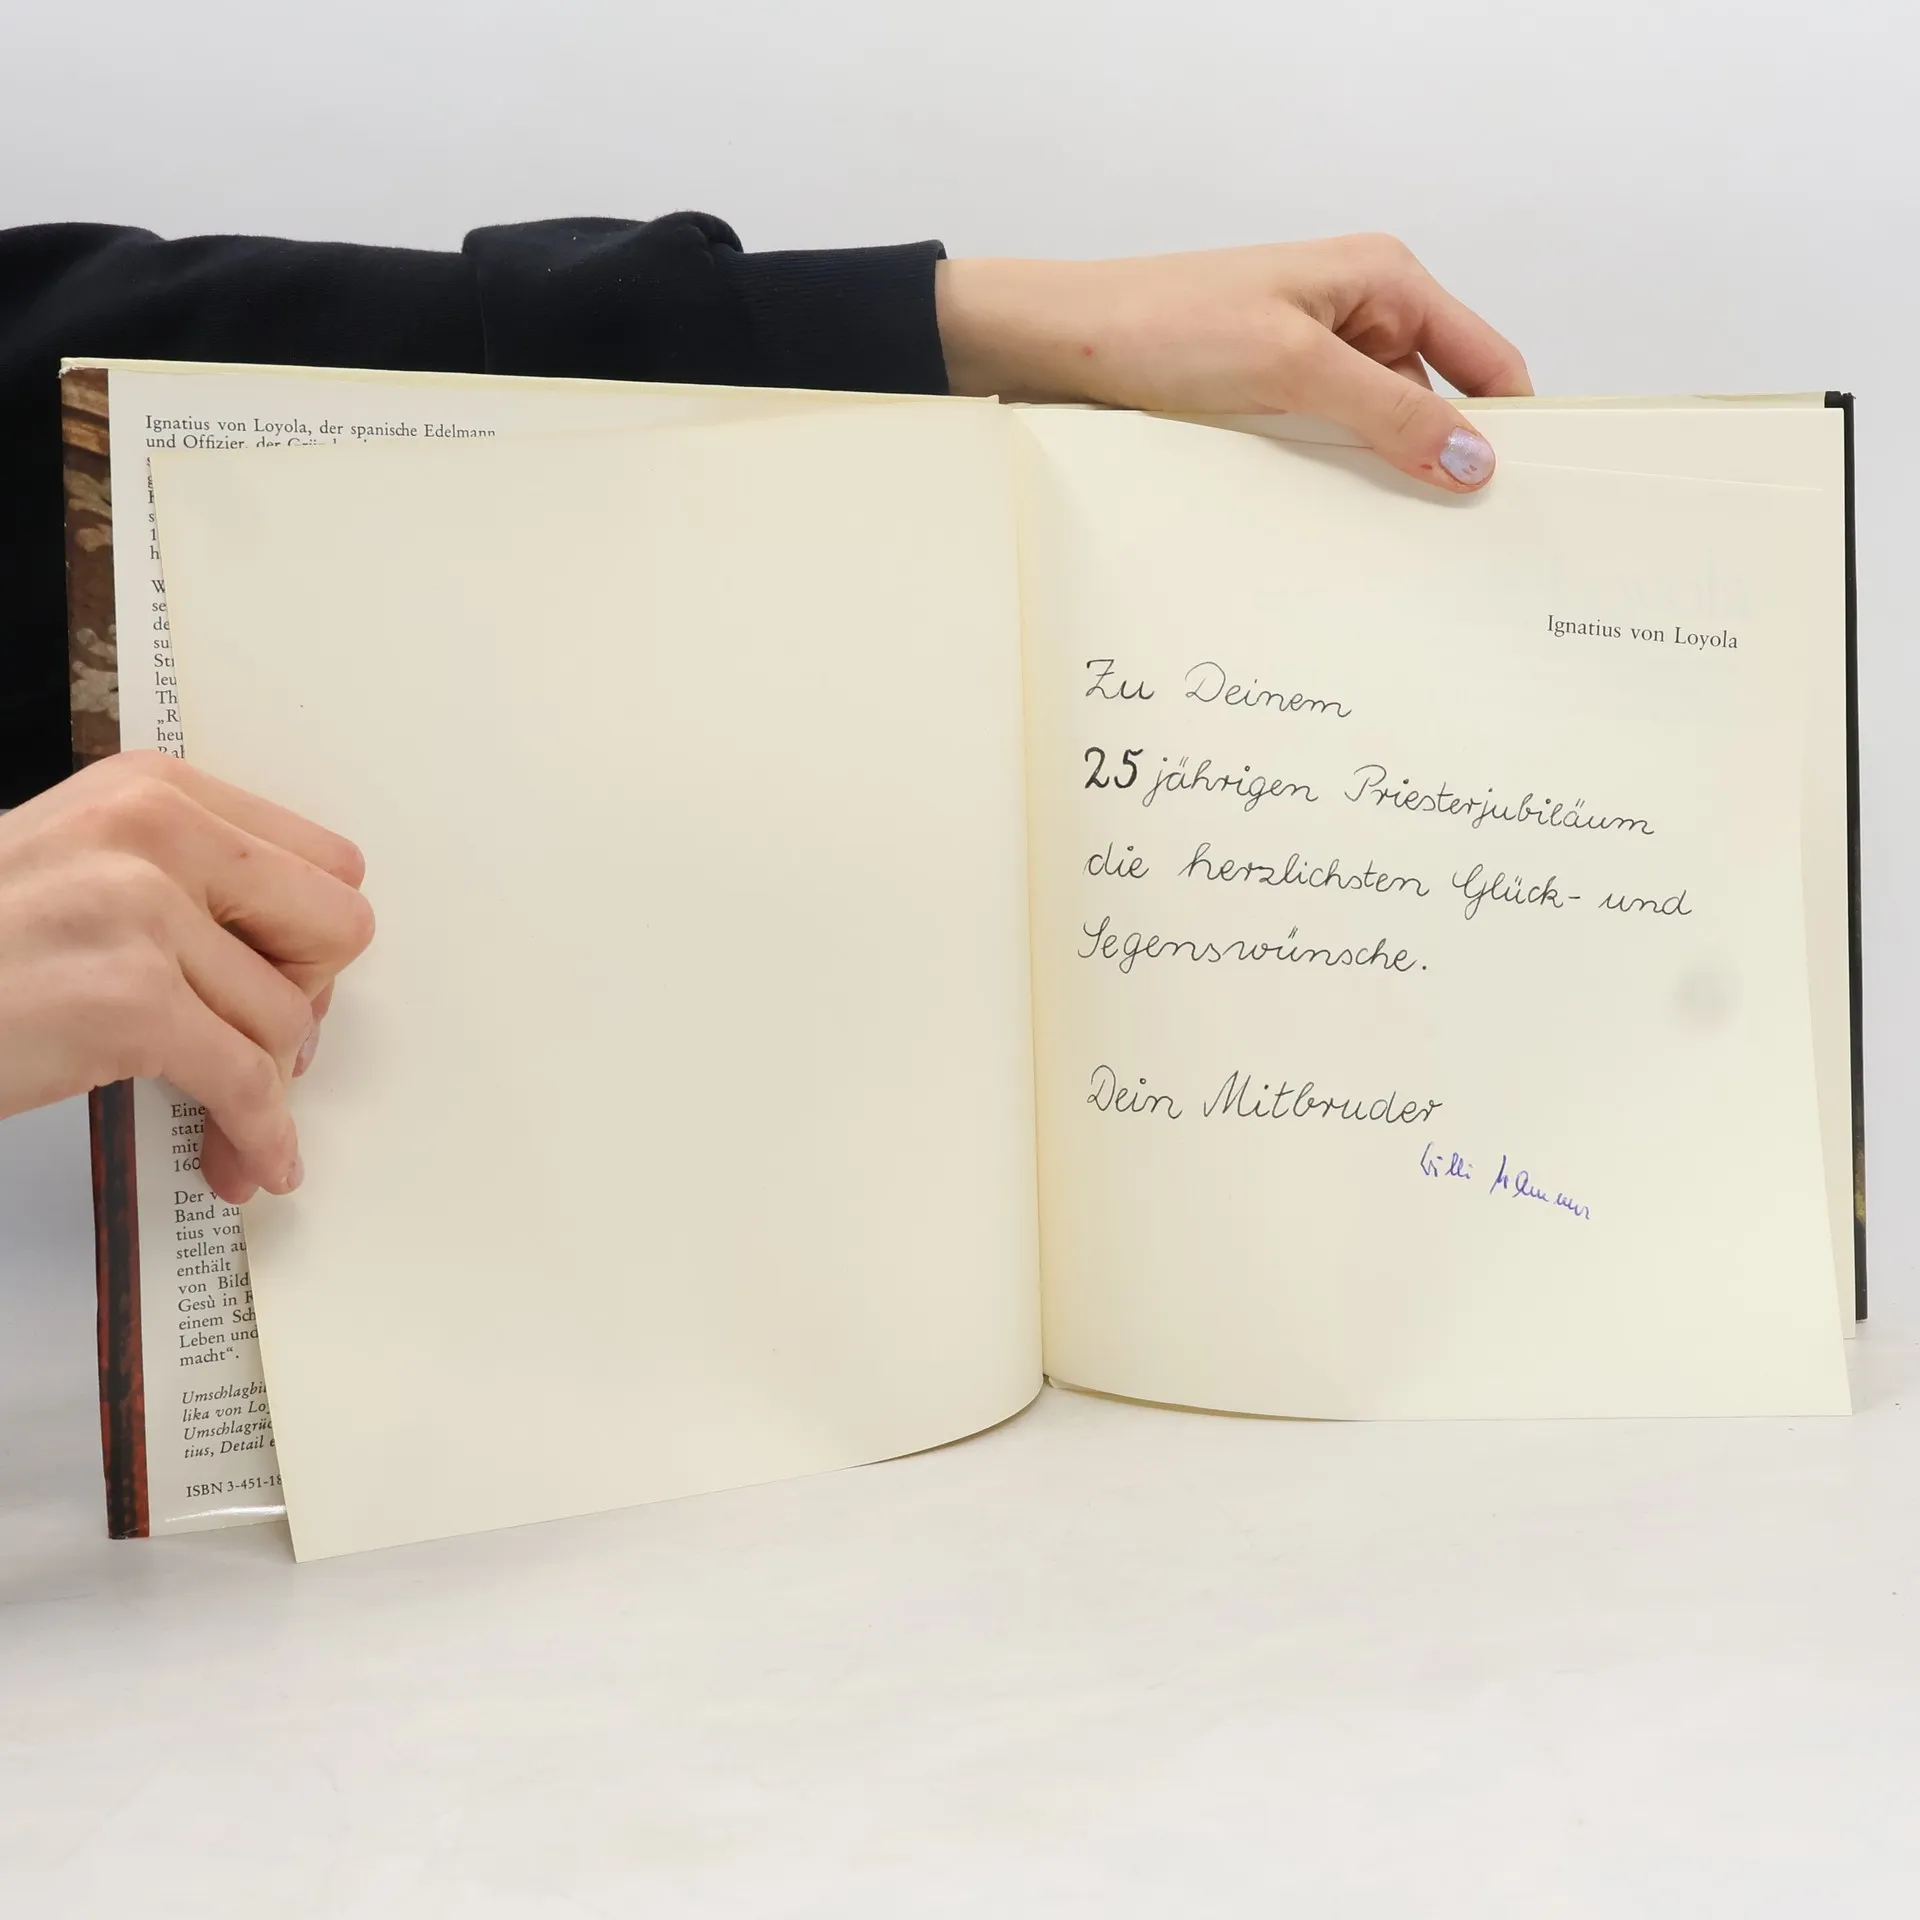 Ignatius von Loyola, der spanische Edelmann
und Offizier, der
h
W
se
de
su
leu
Th
„R
heu
Eine
stati
mit
160
Der v
Band au
tius von
stellen au
enthält
von Bild
Gesù in R
einem Sch
Leben und
macht“.
Umschlagbi
lika von Lo
Umschlagrüc
tius, Detail e
ISBN 3-451-18
Ignatius von Loyola
Zu Deinem
25 jährigen Priesterjubiläum
die herzlichsten Glück- und
Segenswünsche.
Dein Mitbruder
Willi